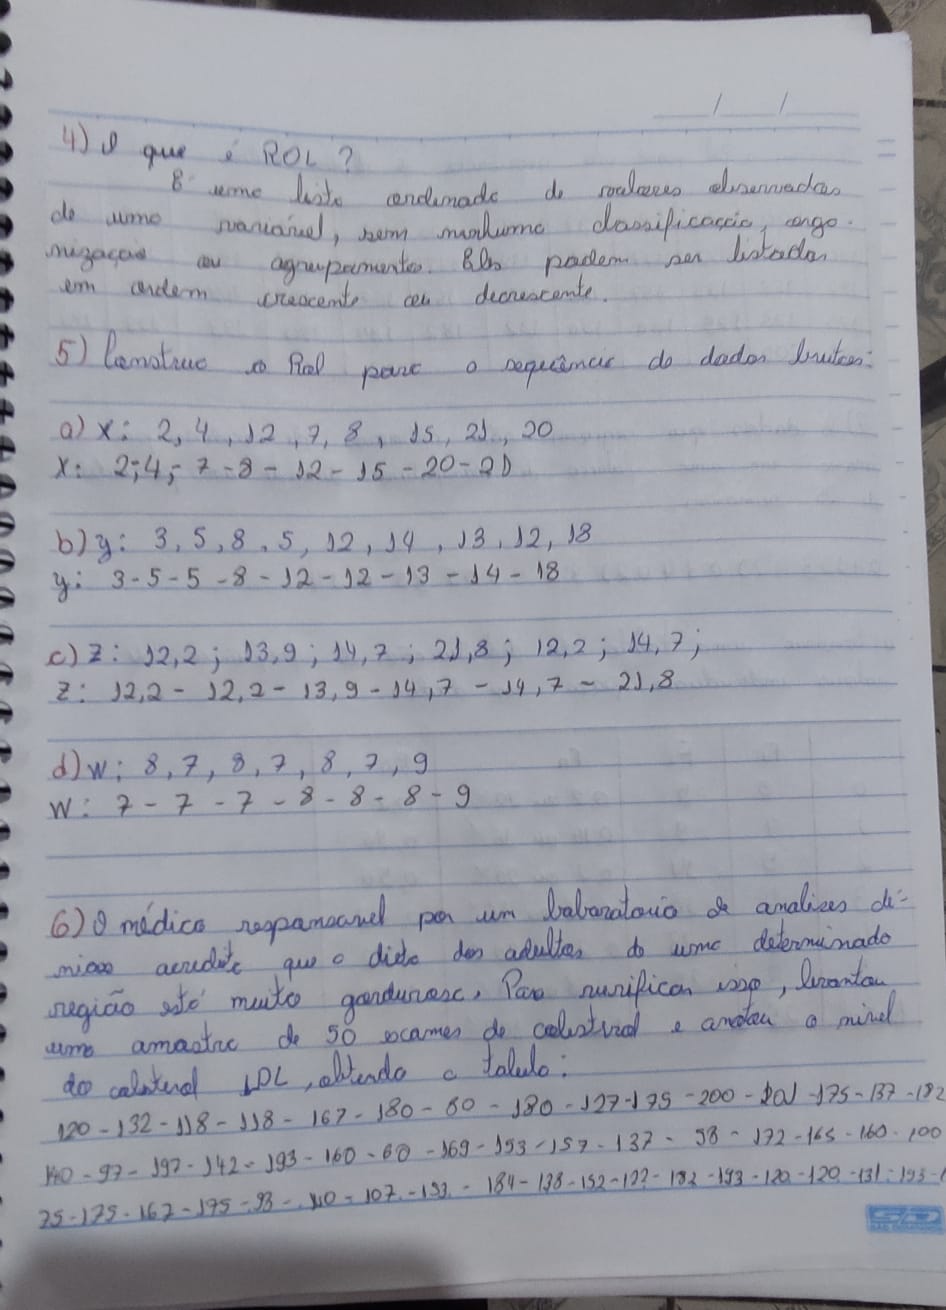 / /
4) O que é ROL?
É uma lista ordenada de valores observados
de uma variável, sem nenhuma classificação, orga-
nização ou agrupamento. Eles podem ser listados
em ordem crescente ou decrescente.
5) Construa o Rol para a sequência de dados brutos:
a) X: 2, 4, 12, 7, 8, 15, 21, 20
X: 2;4;-7-8-12-15-20-21
b) y: 3, 5, 8, 5, 12, 14, 13, 12, 18
y: 3-5-5-8-12-12-13-14-18
c) Z: 12,2; 13,9; 14,7; 21,8; 12,2; 14,7;
Z: 12,2-12,2-13,9-14,7-14,7-21,8
d) W: 8, 7, 8, 7, 8, 7, 9
W: 7-7-7-8-8-8-9
6) O médico responsavel por um laboratorio de analizes cli-
nicas acredita que a dieta dos adultos de uma determinada
região está muito gordurosa, Para verificar isso, levantou
uma amostra de 50 exames de colesterol e anotou o nivel
do colesterol LDL, obtendo a tabela:
120-132-118-118-167-180-60-180-127-175-200-201-175-137-182
140-97-197-142-193-160-60-169-153-157-137-98-172-165-160-100
75-175-167-175-93-110-107-193-184-138-152-122-182-193-120-120-131-193-
SD